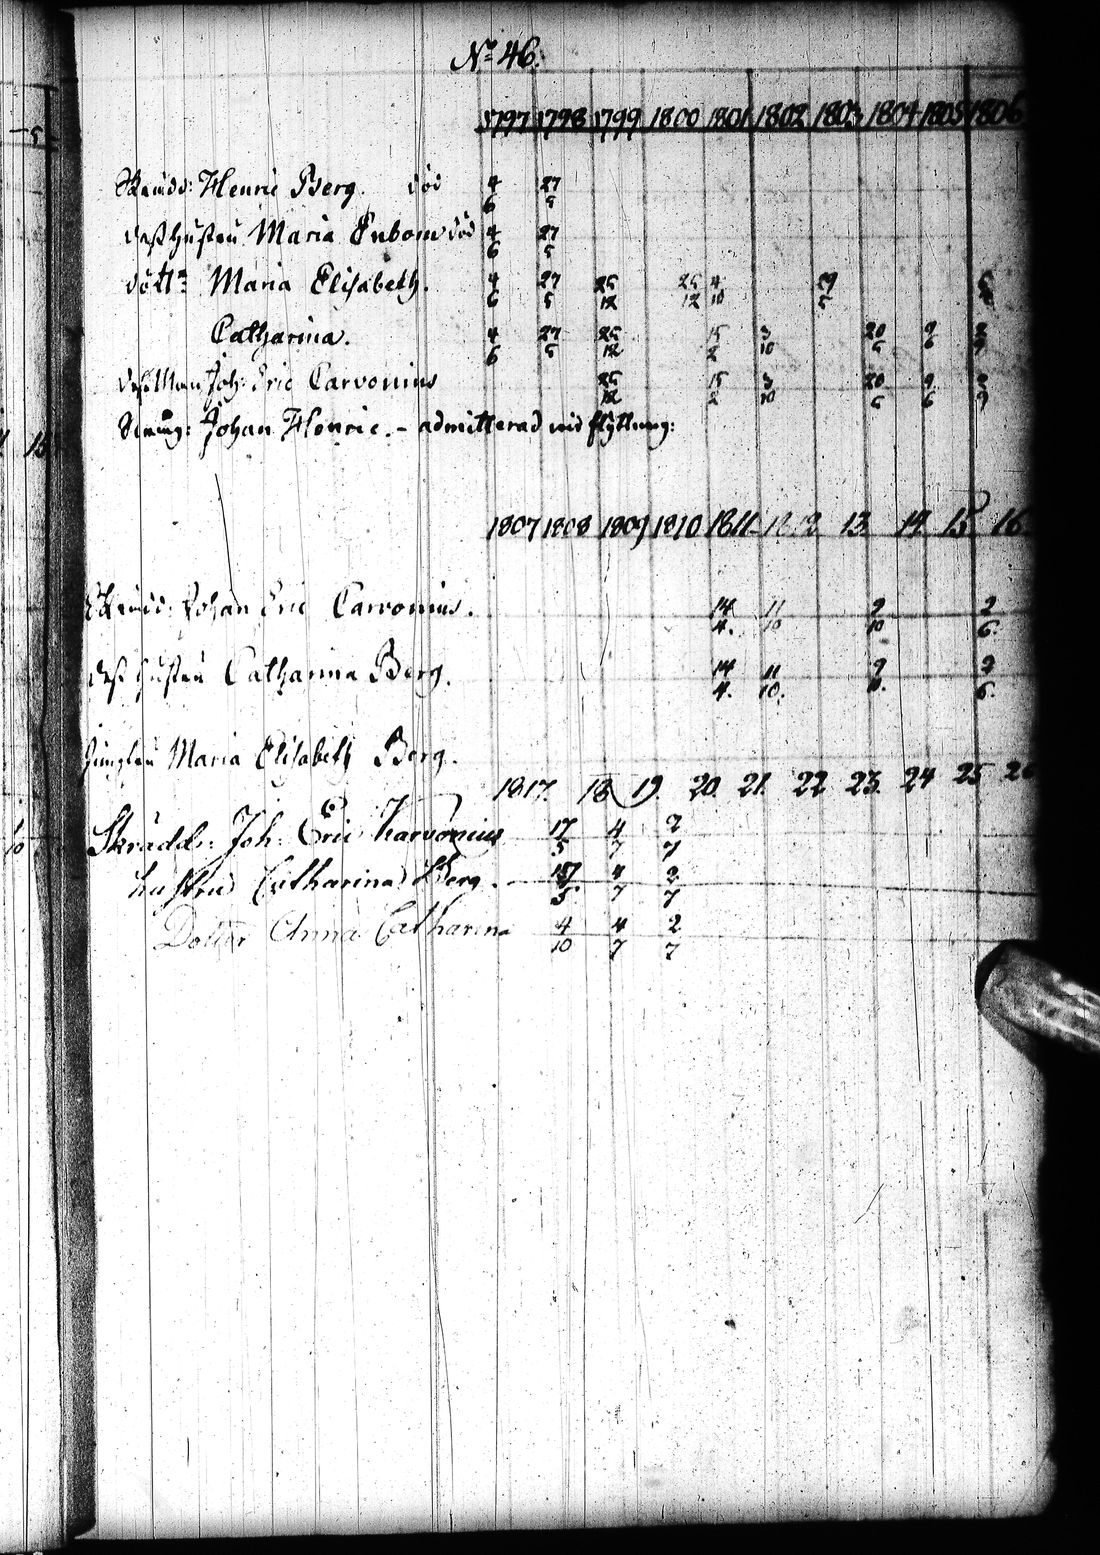 No 46.
1797 1798 1799 1800 1801 1802 1803 1804 1805 1806
Skrädd: Henric Berg. död 4/6 27/5
dess hustru Maria Enbom död 4/6 27/5
dött:r Maria Elisabeth. 4/6 27/5 26/12 25/12 4/10 29/5
Catharina. 4/6 27/5 26/12 15/2 3/10 20/6 9/6 2/7
dess Man Joh: Eric Carvonius 26/12 15/2 3/10 20/6 9/6 2/7
Johan Henric. - admitterad vid flyttning:
1807 1808 1809 1810 1811 1812 13. 14. 15. 16.
Skrädd: Johan Eric Carvonius. 14/4. 11/10 9/10 2/6.
dess hustru Catharina Berg. 14/4. 11/10. 9 2/6.
Jungfru Maria Elisabeth Berg.
1817. 18 19. 20. 21. 22 23. 24 25 26
Skrädd: Joh: Eric Karvonius 17/5 4/7 2/7
hustru Catharina Berg. 17/5 4/7 2/7
Dotter Anna Catharina 4/10 4/7 2/7